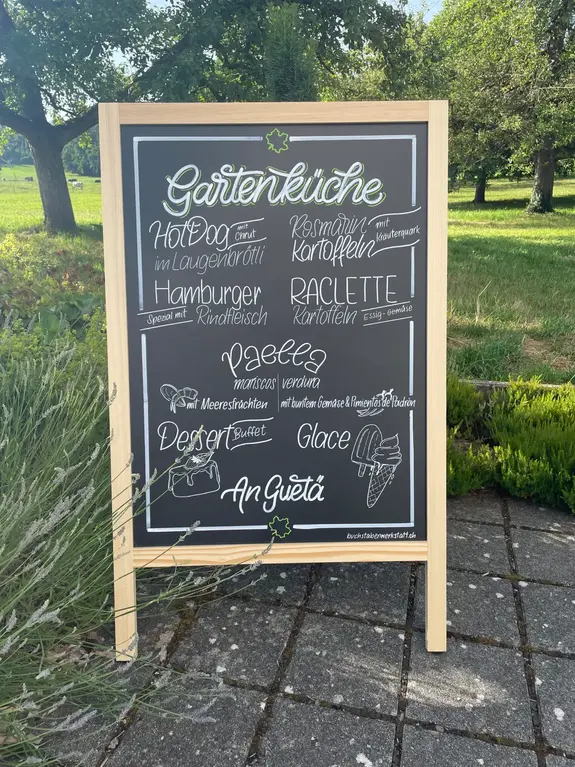 Gartenküche
HotDog mit Chrut
im Laugenbrötli
Rosmarin
Kartoffeln mit Kräuterquark
Hamburger
Spezial mit Rindfleisch
RACLETTE
Kartoffeln Essig-Gemüse
Paella
mariscos verdura
mit Meeresfrüchten mit buntem Gemüse & Pimientos de Padrón
Dessert Buffet
Glace
An Guetä
buchstabenwerkstatt.ch